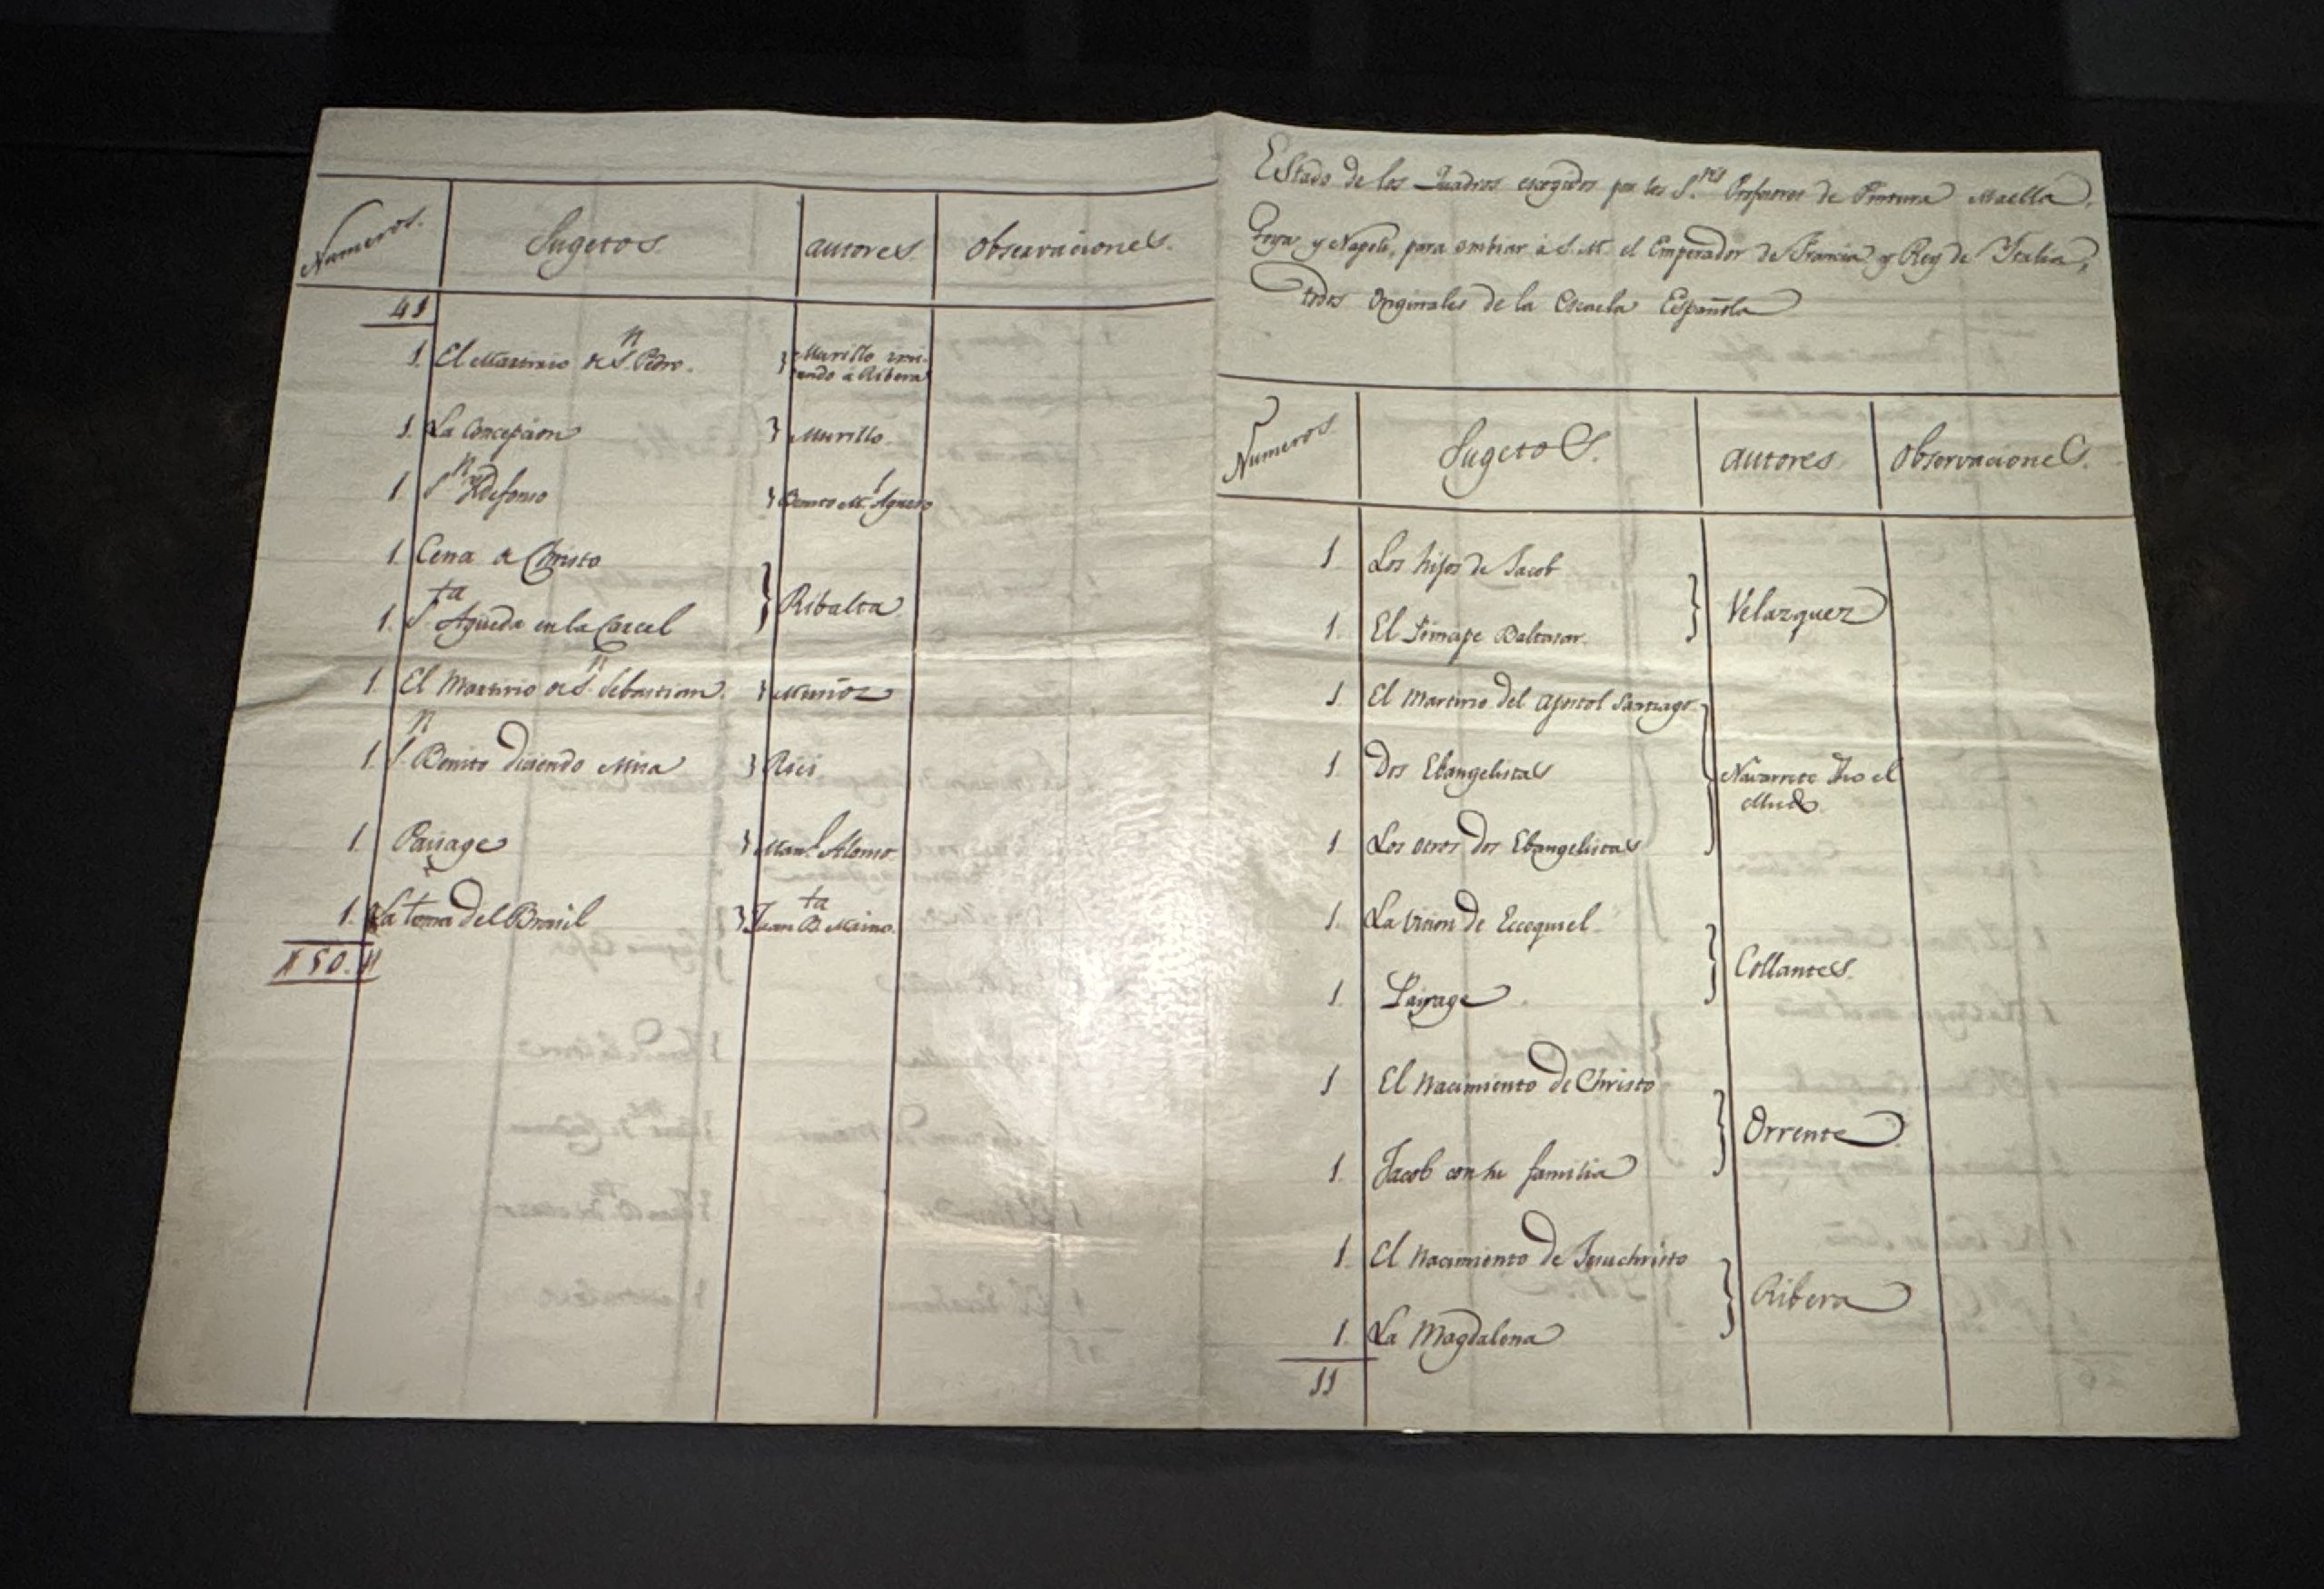 Numeros. Sugetos. autores. Observaciones.
41
1. El Martirio de S.n Pedro. } Murillo imi-
tando á Ribera
1. La Concepcion } Murillo.
1. S.n Ildefonso } Benito M.l Aguero
1. Cena de Christo
1. S.ta Agueda en la Carcel } Ribalta
1. El Martirio de S.n Sebastian } Muñoz
1. S.n Benito diciendo Misa } Rici
1. Paisage } Man.l Alonso
1. La toma del Brasil } Juan B.ta Maino.
50.
Estado de los Quadros escogidos por los S.res Profesores de Pintura Maella,
Goya, y Napoli, para embiar á S. M. el Emperador de Francia y Rey de Italia,
todos Originales de la Escuela Española
Numeros. Sugetos. autores. Observaciones.
1 Los hijos de Jacob
1. El Principe Baltasar. } Velazquez
1. El Martirio del Apostol Santiago.
1 Dos Ebangelistas } Navarrete el
Mudo
1 Los otros dos Ebangelistas
1. La vision de Ecequiel
1. Paisage } Collantes.
1 El Nacimiento de Christo
1. Jacob con su familia } Orrente
1. El Nacimiento de Jesuchristo
1. La Magdalena } Ribera
11